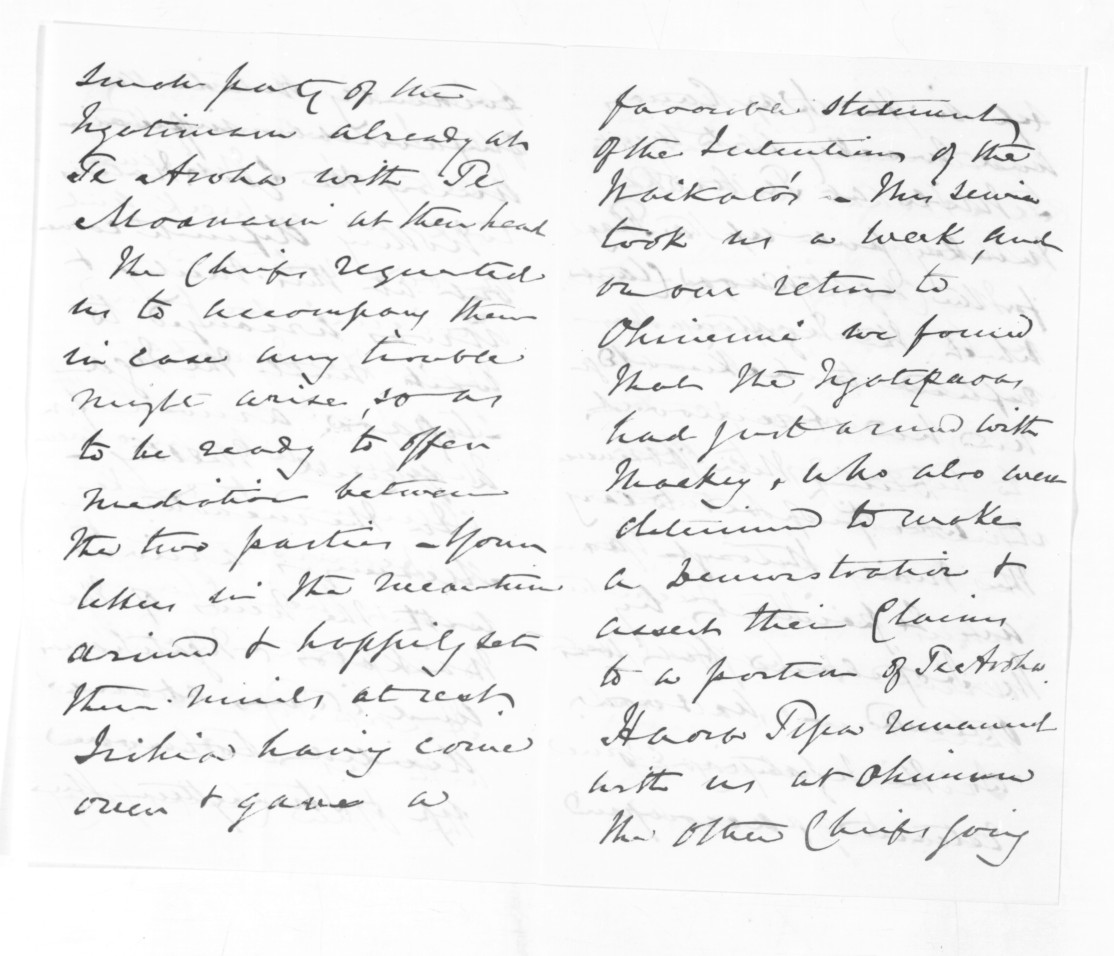 small party of the
Ngatimaru already at
Te Aroha with Te
Moananui at their head
The Chiefs requested
us to accompany them
in case any trouble
might arise, so as
to be ready to offer
mediation between
the two parties - Your
letters in the meantime
arrived & happily set
their minds at rest
having come
over & gave a
favorable statement
of the Intentions of the
Waikato's - This
took us a week, and
on our return to
Ohinemuri we found
that the Ngatipaoas
had just arrived with
Mackey, who also were
determined to make
a Demonstration &
assert their Claims
to a portion of Te Aroha.
Haora Tipa remained
with us at Ohinemuri
the other Chiefs going